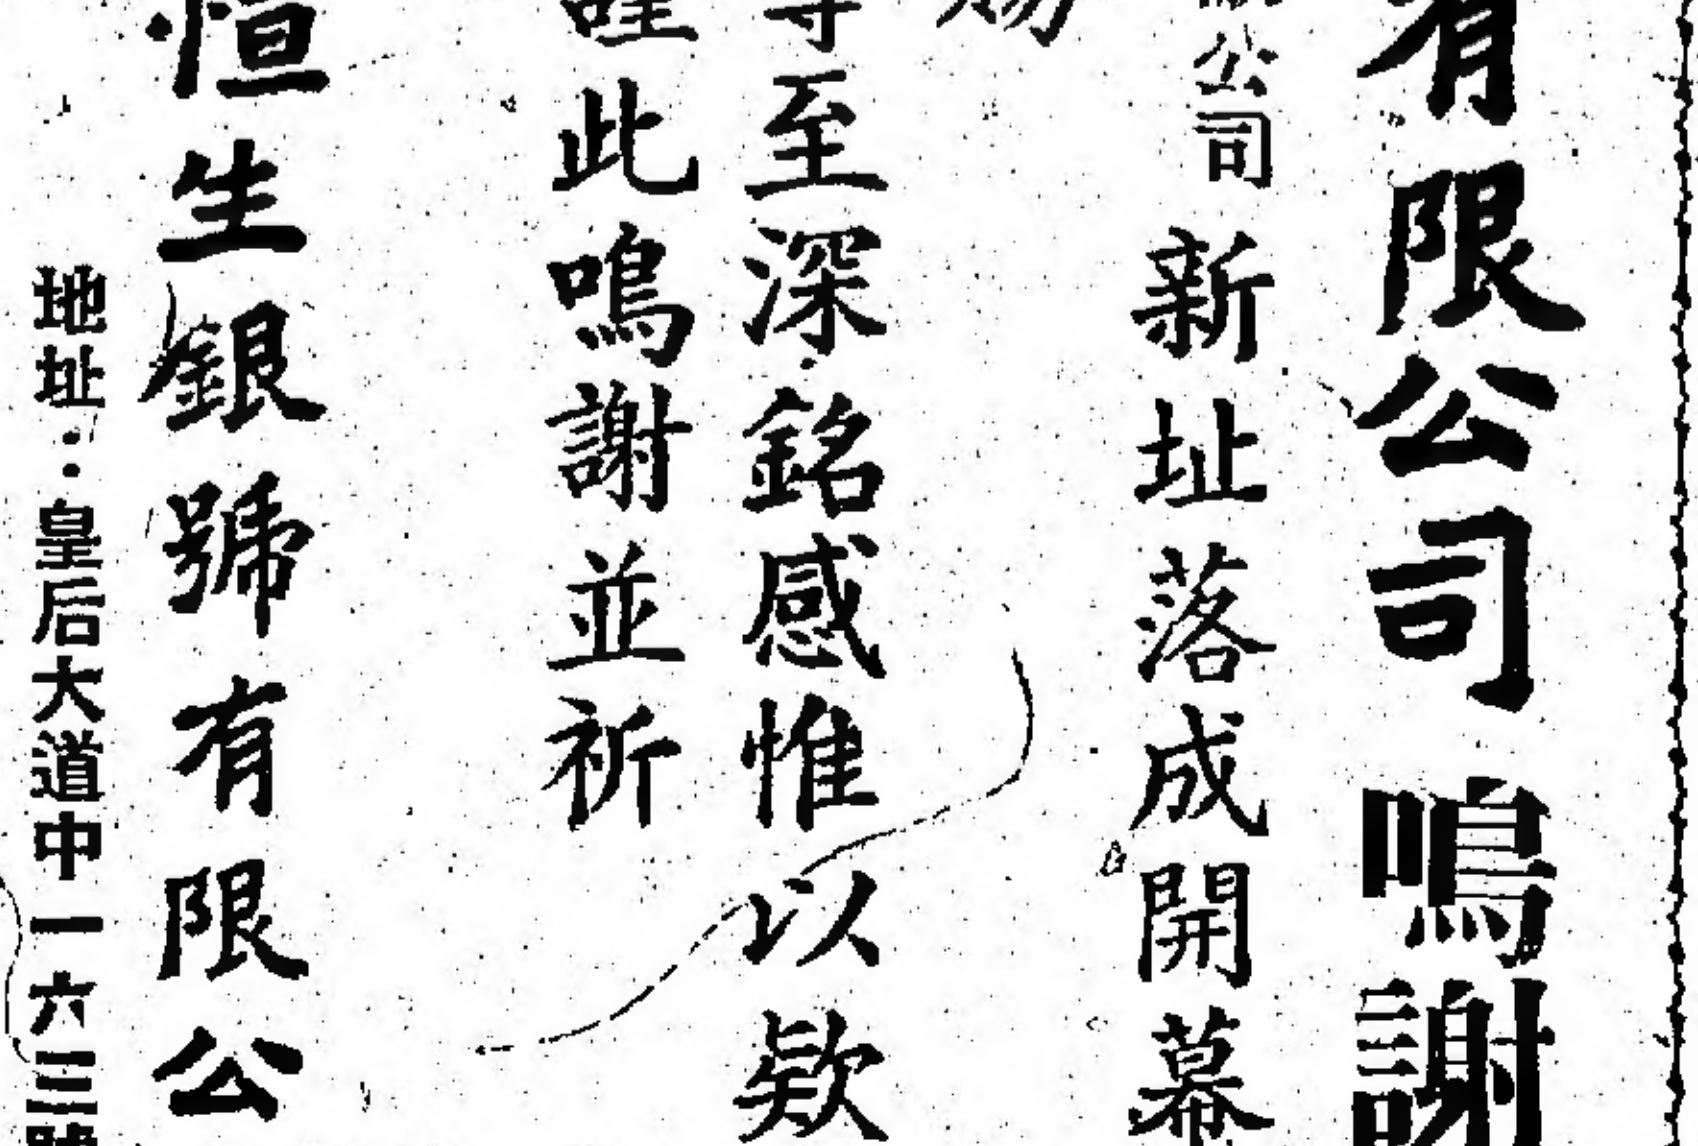 有限公司鳴謝
公司新址落成開幕
賜
等至深銘感惟以歉
謹此鳴謝並祈
恒生銀號有限公
地址：皇后大道中一六三號